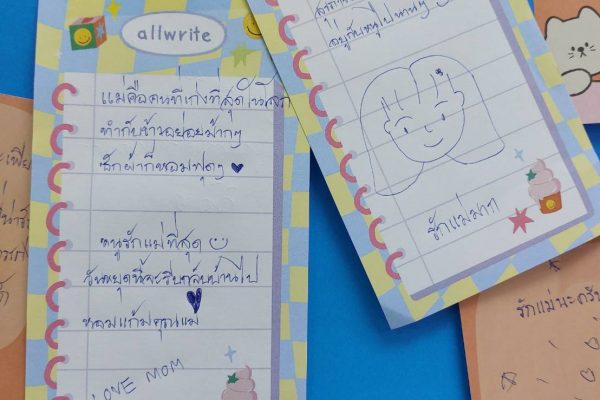 allwrite
แม่คือคนที่เก่งที่สุดในโลก
ทำกับข้าวอร่อยมากๆ
ซักผ้าก็หอมฟุดๆ
หนูรักแม่ที่สุด
วันหยุดนี้จะรีบกลับบ้านไป
หอมแก้มคุณแม่
LOVE MOM
อยู่กับหนูไปนานๆ
รักแม่มาก
รักแม่นะครับ